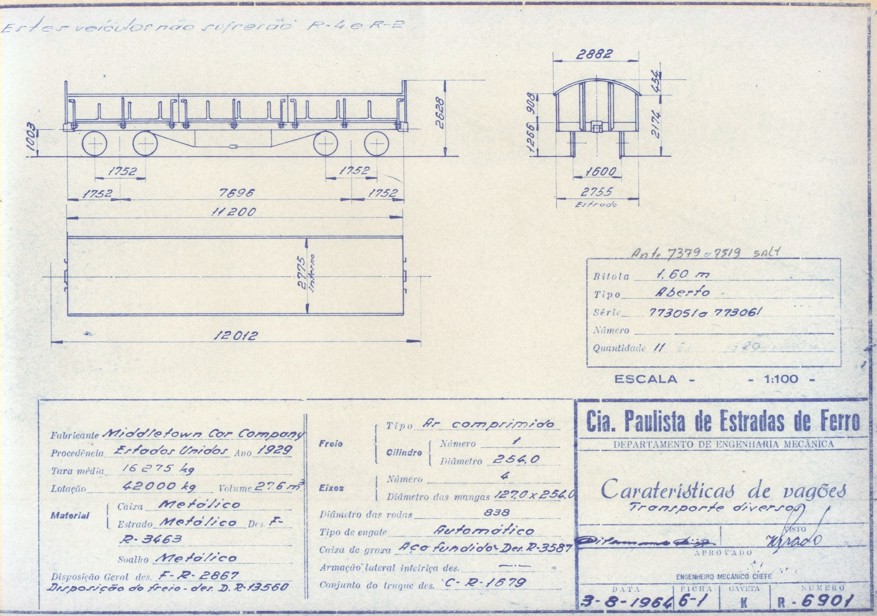 Estes veículos não sofrerão R-4 e R-2
2882
454
2628
1003
908
1266
2174
1752
1752
1752
7696
1752
11200
1600
2755
Estrado
2775
Interno
12012
7379 a 7519
Bitola 1,60 m
Tipo Aberto
Série 773051 a 773061
Número
Quantidade 11
ESCALA - - 1:100 -
Fabricante Middletown Car Company
Procedência Estados Unidos Ano 1929
Tara média 16275 kg
Lotação 42000 kg Volume 27.6 m³
Material
Caixa Metálico
Estrado Metálico Des F-
R-3463
Soalho Metálico
Disposição Geral des. F-R-2867
Disposição do freio-des. D.R-13560
Freio
Tipo Ar comprimido
Cilindro
Número 1
Diâmetro 254,0
Eixos
Número 4
Diâmetro das mangas 127,0 x 254,0
Diâmetro das rodas 838
Tipo de engate Automático
Caixa de graxa Aço fundido-Des.R-3587
Armação lateral inteiriça des.
Conjunto do truque des. C-R-1679
Cia. Paulista de Estradas de Ferro
DEPARTAMENTO DE ENGENHARIA MECÂNICA
Caraterísticas de vagões
Transporte diversos
VISTO
APROVADO
ENGENHEIRO MECÂNICO CHEFE
DATA FICHA GAVETA NÚMERO
3-8-1964 6-1 K R-6901